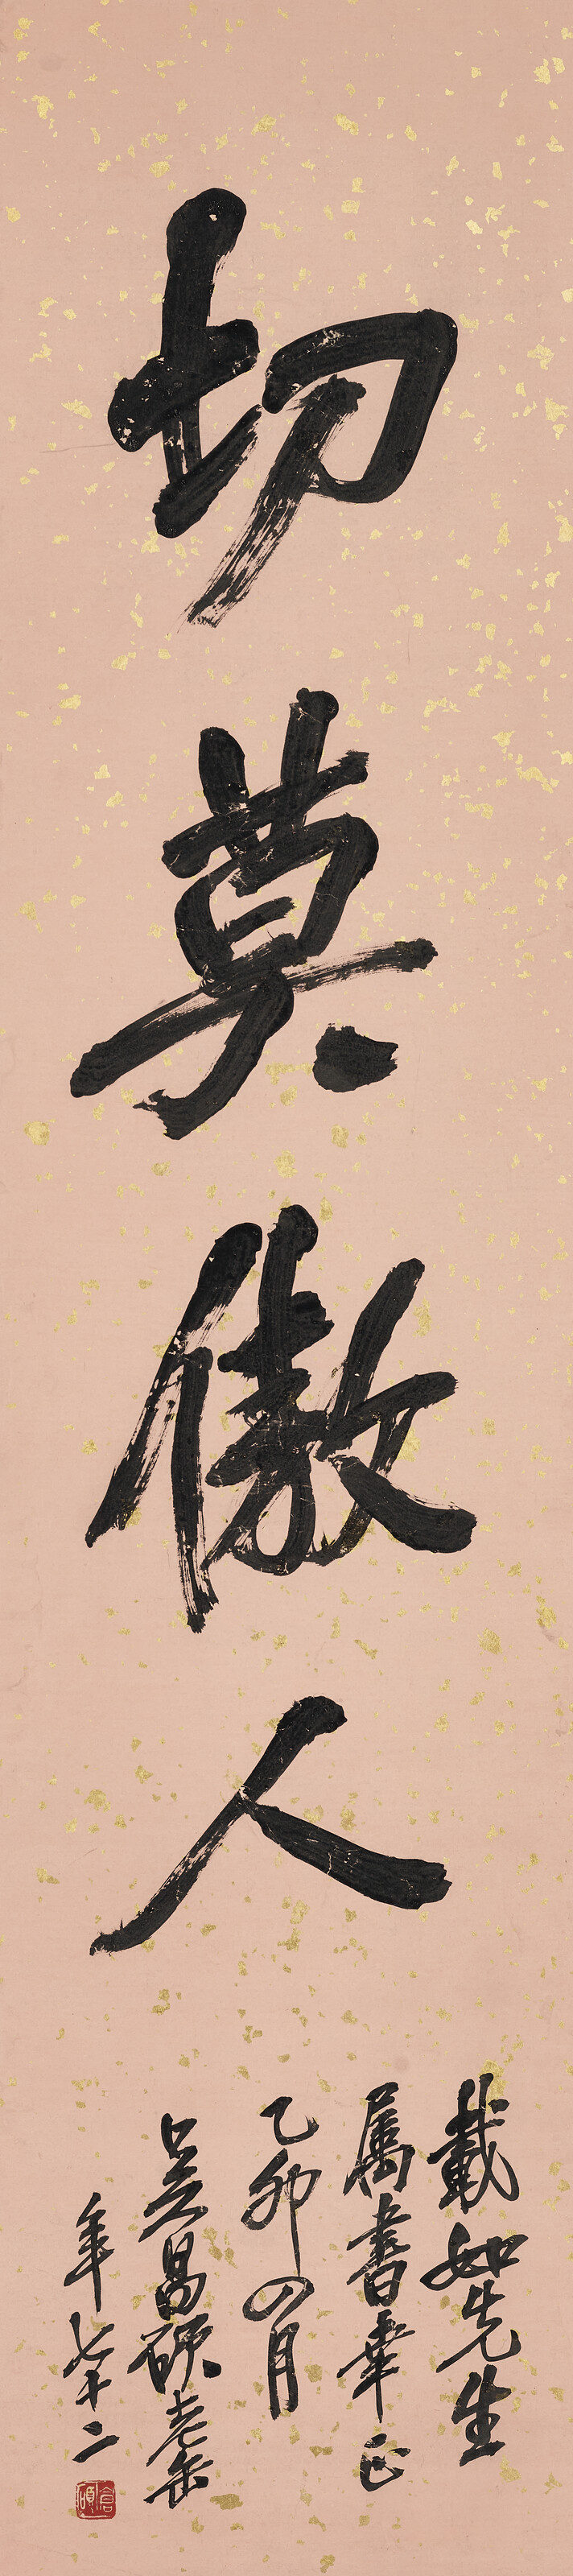 切莫傲人
載如先生
属書幸正
乙卯四月
吳昌碩老缶
年七十二
倉碩